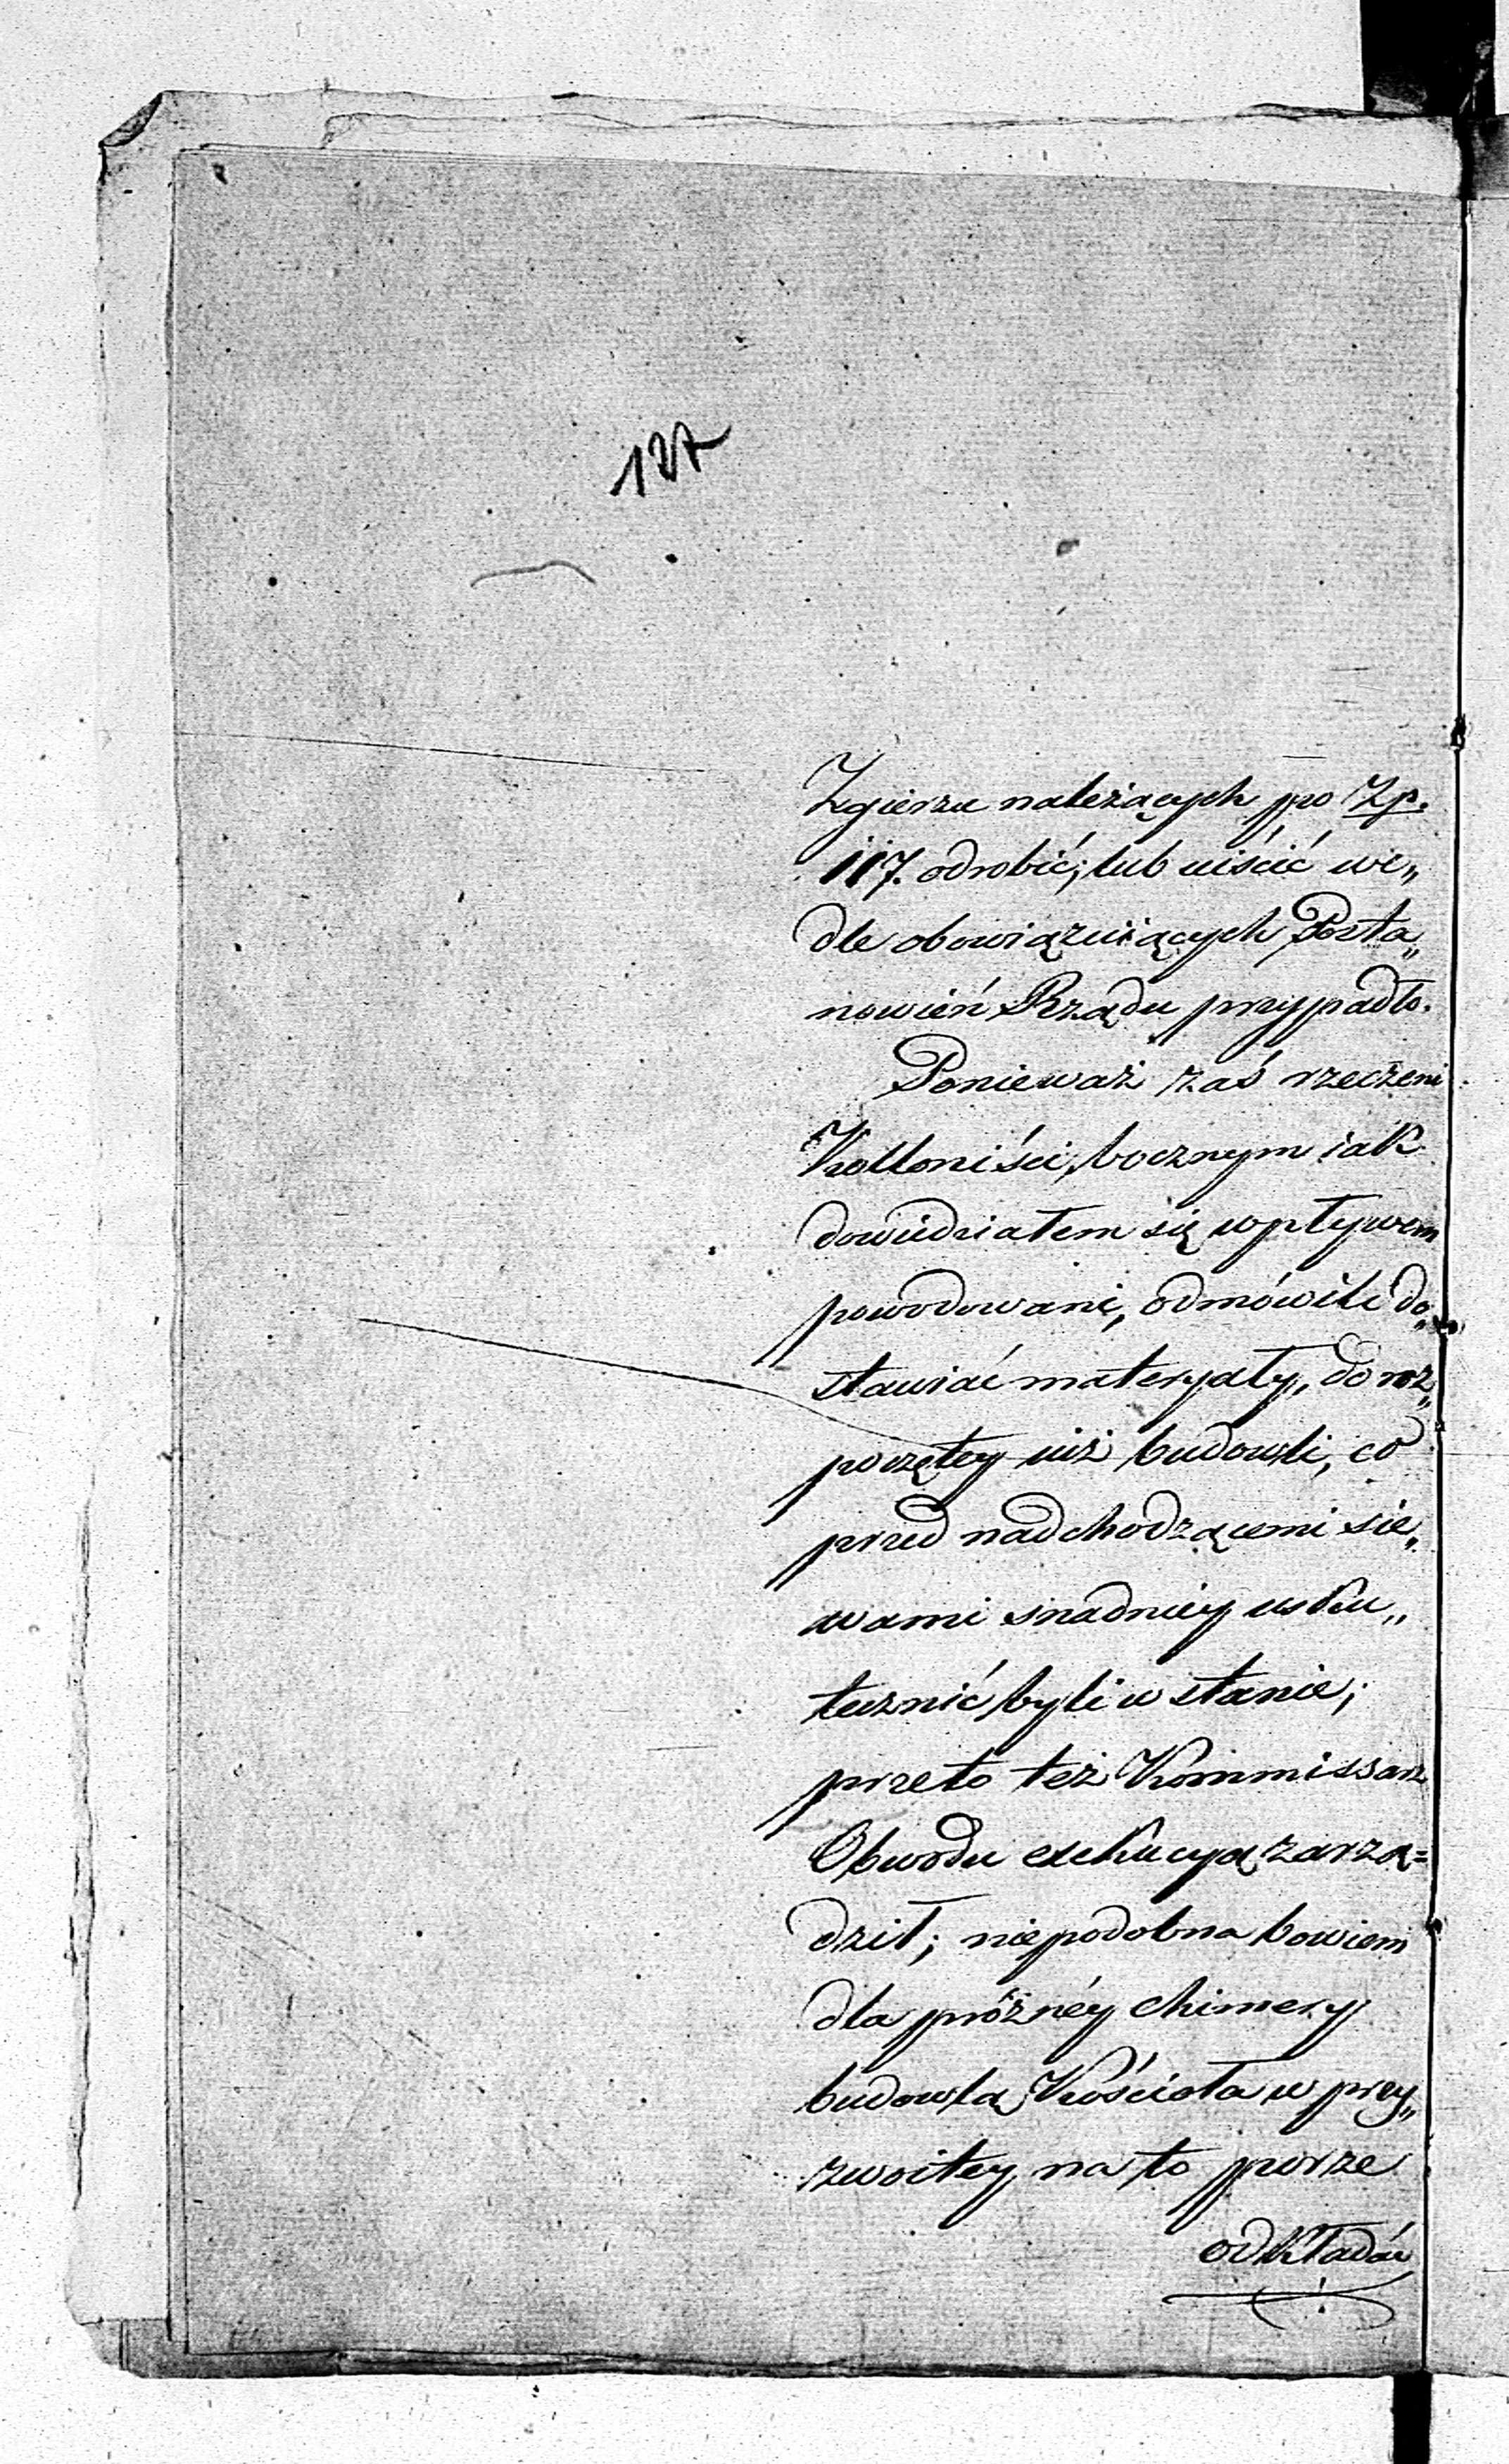 127
Zgierzu należących po Zp.
117. odrobić; lub uiścić we„
dle obowiązuiących Posta„
nowień Rządu przypadło.
Ponieważ zaś rzeczeni
Kolloniści, bocznym iak
dowiedziałem się wpływem
powodowani, odmówili do„
stawiać materyały, do roz„
poczętey iuż budowli, co
przed nadchodzącemi sie„
wami snadniey usku„
tecznić byli w stanie;
przeto też Kommissarz
Obwodu exekucyą zarzą=
dził; niepodobna bowiem
dla próżnéy chimery
budowlą Kościoła w przy„
zwoitey na to porze
odkładać